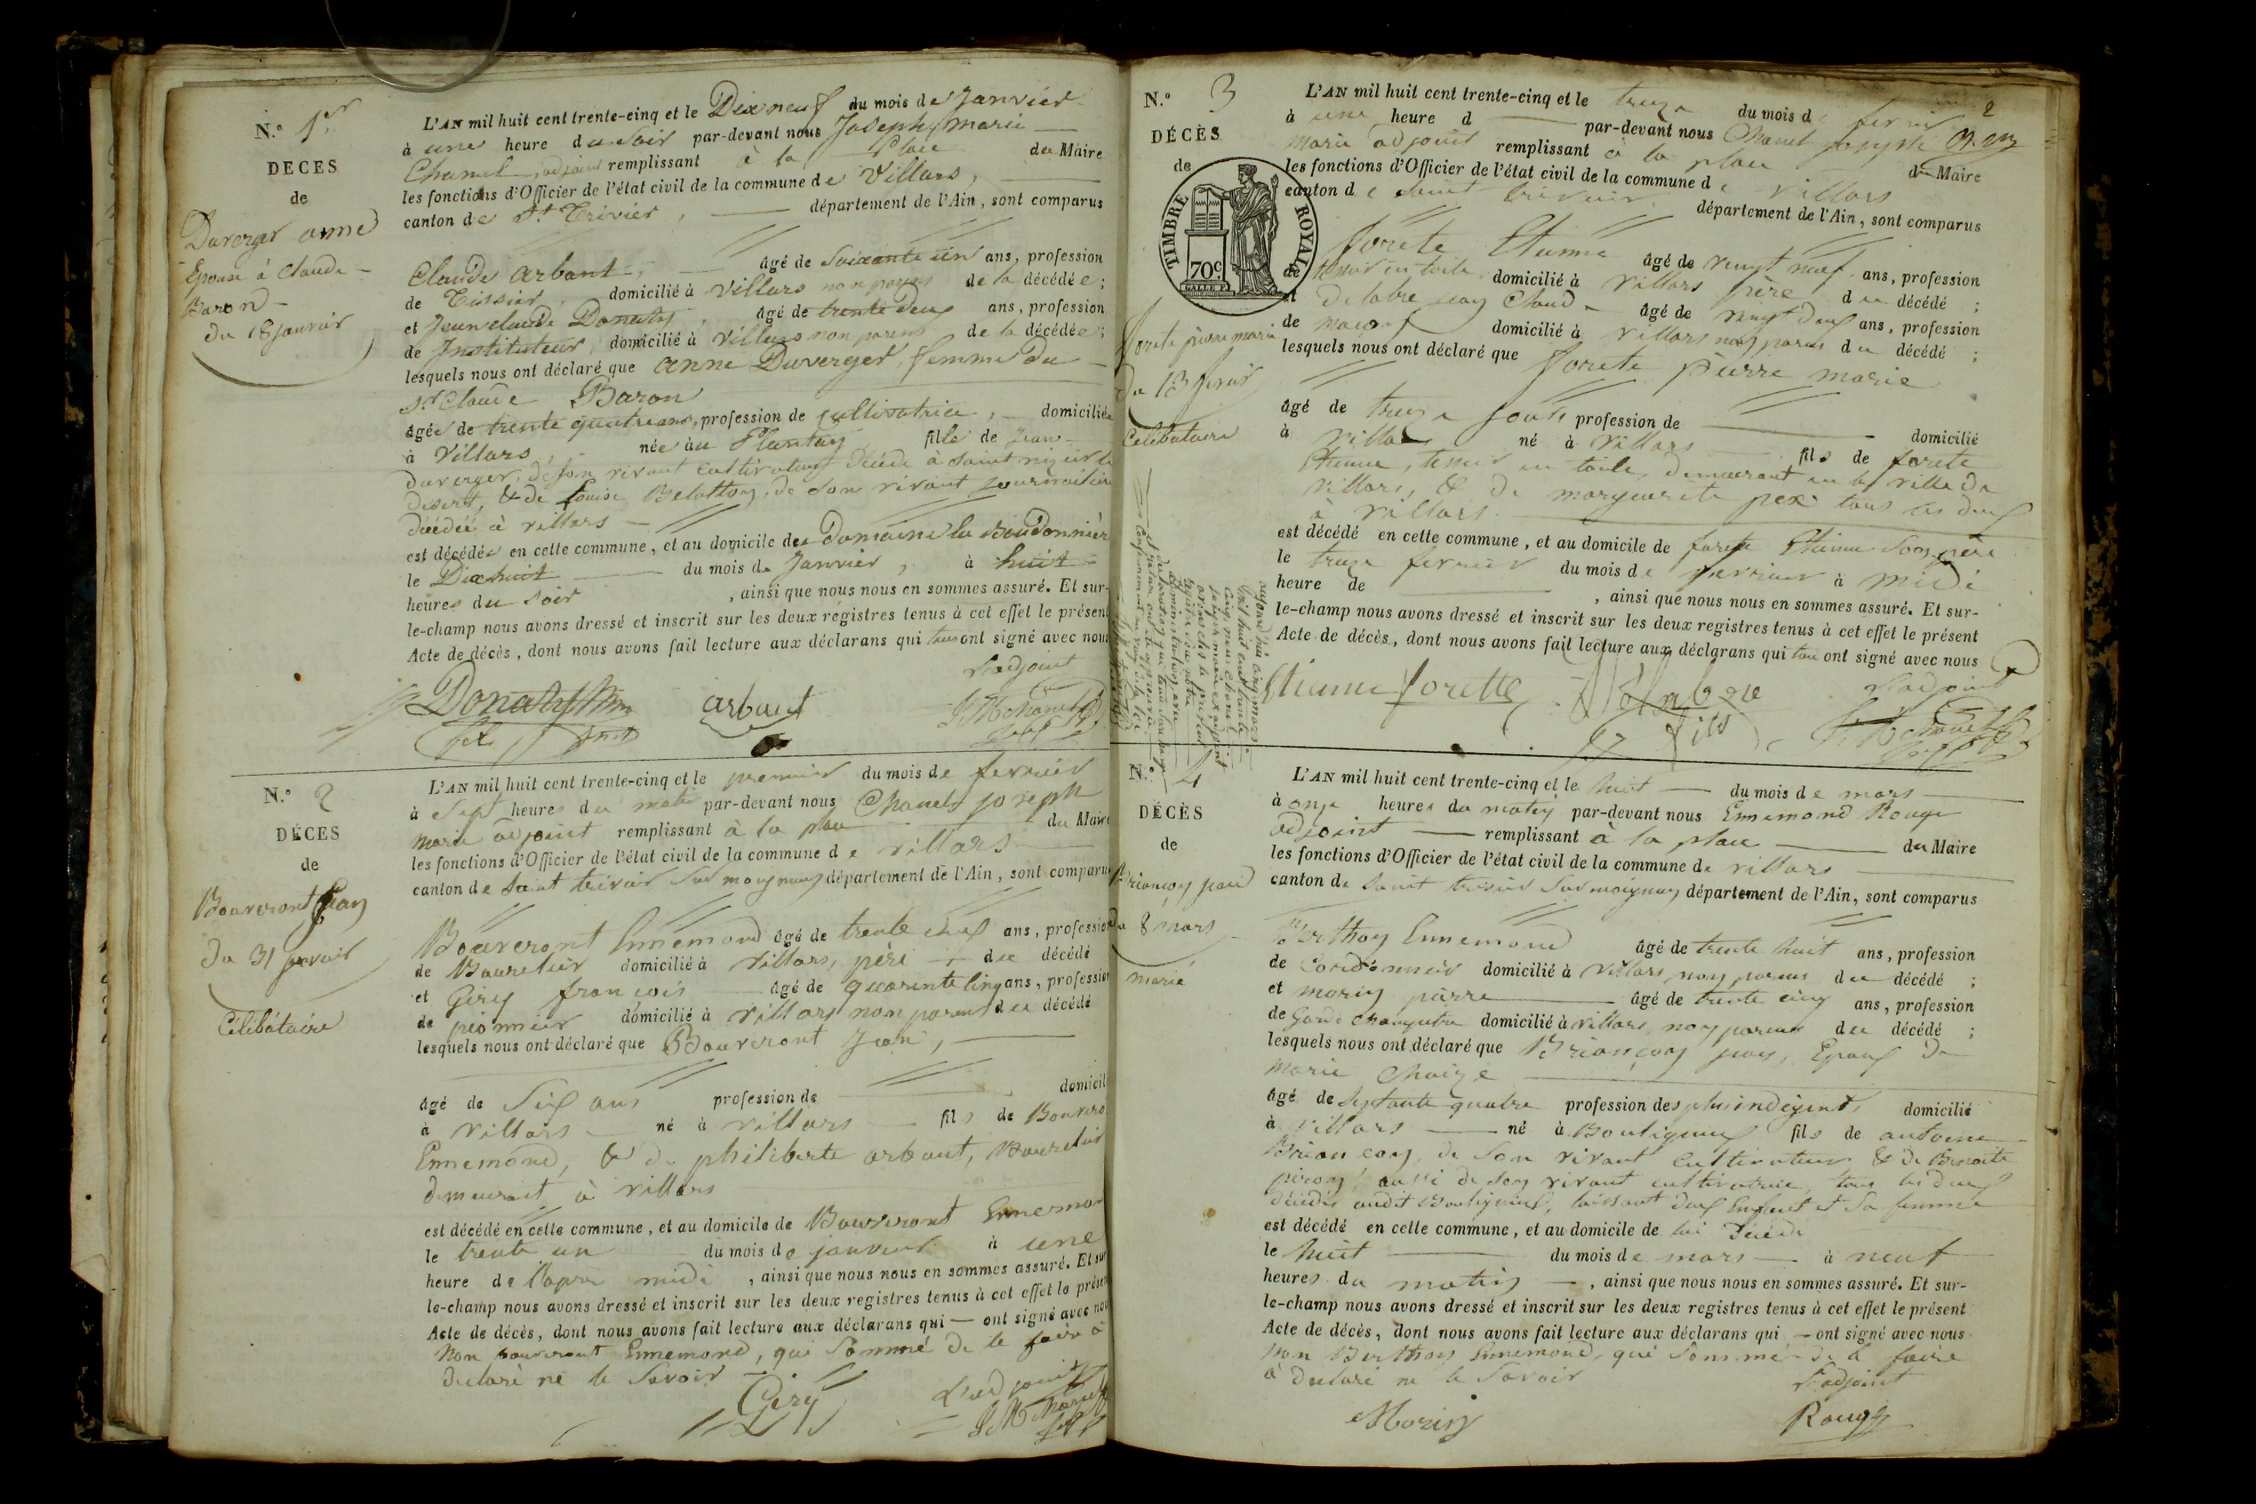 N.° 1er
DECES
de
Duverger anne
Epouse à Claude
Baron
du 18 janvier
L'AN mil huit cent trente-cinq et le Dix neuf du mois de Janvier
à une heure du soir par-devant nous Joseph marie
Chanel, adjoint remplissant à la Place du Maire
les fonctions d'Officier de l'état civil de la commune de Villars,
canton de St. Trivier, département de l'Ain, sont comparus
Claude Arbant, âgé de Soixante un ans, profession
de Tissier, domicilié à Villars non parent de la décédée ;
et Jean claude Donaty, âgé de trente deux ans, profession
de Instituteur, domicilié à Villars non parent de la décédée ;
lesquels nous ont déclaré que anne Duverger, femme du
Sr. Claude Baron
âgée de trente quatre ans, profession de cultivatrice, domiciliée
à Villars, née au Plantay fille de Jean
duverger, de son vivant cultivateur décédé à saint nizier le
désert, & de Louise, de son vivant journalière
décédée à villars
est décédée en cette commune, et au domicile de Domaine la
le Dix huit du mois de Janvier, à huit
heures du soir, ainsi que nous nous en sommes assuré. Et sur-
le-champ nous avons dressé et inscrit sur les deux registres tenus à cet effet le présent
Acte de décès, dont nous avons fait lecture aux déclarans qui tous ont signé avec nous
L'adjoint
Donaty arbant J. M. Chanel
N.° 2
DÉCES
de
Bouveront Jean
du 31 janvier
Célibataire
L'AN mil huit cent trente-cinq et le premier du mois de fevrier
à Sept heures du matin par-devant nous Chanel joseph
marie adjoint remplissant à la place du Maire
les fonctions d'Officier de l'état civil de la commune de villars
canton de saint trivier sur moignans département de l'Ain, sont comparus
Bouveront Ennemond âgé de trente ans, profession
de Bourelier domicilié à villars, père du décédé
et Gery françois âgé de quarente cinq ans, profession
de pionnier domicilié à villars non parent du décédé
lesquels nous ont déclaré que Bouveront Jean,
âgé de Six ans profession de domicilié
à villars né à villars fils de Bouvero
Ennemond, & de philiberte arbant, Bourelier
demeurant à villars
est décédé en cette commune, et au domicile de Bouveront Ennemon
le trente un du mois de janvier à une
heure de l'apres midi, ainsi que nous nous en sommes assuré. Et sur
le-champ nous avons dressé et inscrit sur les deux registres tenus à cet effet le présen
Acte de décès, dont nous avons fait lecture aux déclarans qui — ont signé avec nou
Non bouveront Ennemond, qui Sommé de le faire à
declaré ne le Savoir
Gery L'adjoint
J. M. Chanel
2
N.° 3
DÉCÈS
de
TIMBRE ROYAL
70c
forete pierre marie
du 13 fevrier
Celibataire
L'AN mil huit cent trente-cinq et le treize du mois de fevrier
à une heure d par-devant nous Chanel joseph
marie adjoint remplissant à la place du Maire
les fonctions d'Officier de l'état civil de la commune de villars
canton de saint trivier département de l'Ain, sont comparus
forete Etienne âgé de vingt neuf ans, profession
de tissier en toile domicilié à villars père du décédé ;
et Delabre jean Claude âgé de vingt deux ans, profession
de maçon domicilié à villars non parent du décédé ;
lesquels nous ont déclaré que forete pierre marie
âgé de treize jours profession de domicilié
à villars né à villars fils de forete
Etienne, tissier en toile, demeurant en la ville de
villars, & de marguerite pex tous les deux
à villars
est décédé en cette commune, et au domicile de forete Etienne Son père
le treize fevrier du mois de fevrier à midi
heure de, ainsi que nous nous en sommes assuré. Et sur-
le-champ nous avons dressé et inscrit sur les deux registres tenus à cet effet le présent
Acte de décès, dont nous avons fait lecture aux déclarans qui tous ont signé avec nous
L'adjoint
Etienne forette Délabre fils J. M. Chanel
N.° 4
DÉCÈS
de
Briançon jean
du 8 mars
marié
L'AN mil huit cent trente-cinq et le huit du mois de mars
à onze heures du matin par-devant nous Ennemond Rouge
adjoint remplissant à la place du Maire
les fonctions d'Officier de l'état civil de la commune de villars
canton de saint trivier sur moignans département de l'Ain, sont comparus
Berthoy Ennemond âgé de trente huit ans, profession
de Cordonnier domicilié à villars, non parent du décédé ;
et moriny pierre âgé de trente cinq ans, profession
de Garde champetre domicilié à villars non parent du décédé ;
lesquels nous ont déclaré que Briançon jean, Epoux de
marie
âgé de Septante quatre profession des plus indigents, domicilié
à villars né à Bouligneux fils de antoine
Briançon, de Son vivant Cultivateur & de Benoite
aussi de son vivant cultivatrice, tous les deux
décédés audit Bouligneux, laissant deux Enfants et Sa femme
est décédé en cette commune, et au domicile de lui décédé
le huit du mois de mars à neuf
heures du matin, ainsi que nous nous en sommes assuré. Et sur-
le-champ nous avons dressé et inscrit sur les deux registres tenus à cet effet le présent
Acte de décès, dont nous avons fait lecture aux déclarans qui — ont signé avec nous
non Berthoy Ennemond, qui Sommé de le faire
à declaré ne le Savoir L'adjoint
Moriny Rouge